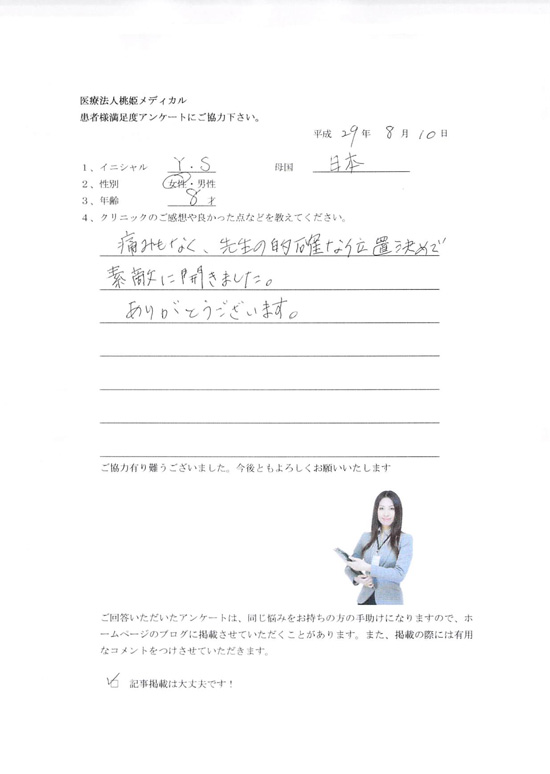 医療法人桃姫メディカル
患者様満足度アンケートにご協力下さい。
平成 29 年 8 月 10 日
1、イニシャル Y.S 母国 日本
2、性別 女性・男性
3、年齢 8 才
4、クリニックのご感想や良かった点などを教えてください。
痛みもなく、先生の的確な位置決めで
素敵に開きました。
ありがとうございます。
ご協力有り難うございました。今後ともよろしくお願いいたします
ご回答いただいたアンケートは、同じ悩みをお持ちの方の手助けになりますので、ホ
ームページのブログに掲載させていただくことがあります。また、掲載の際には有用
なコメントをつけさせていただきます。
記事掲載は大丈夫です！